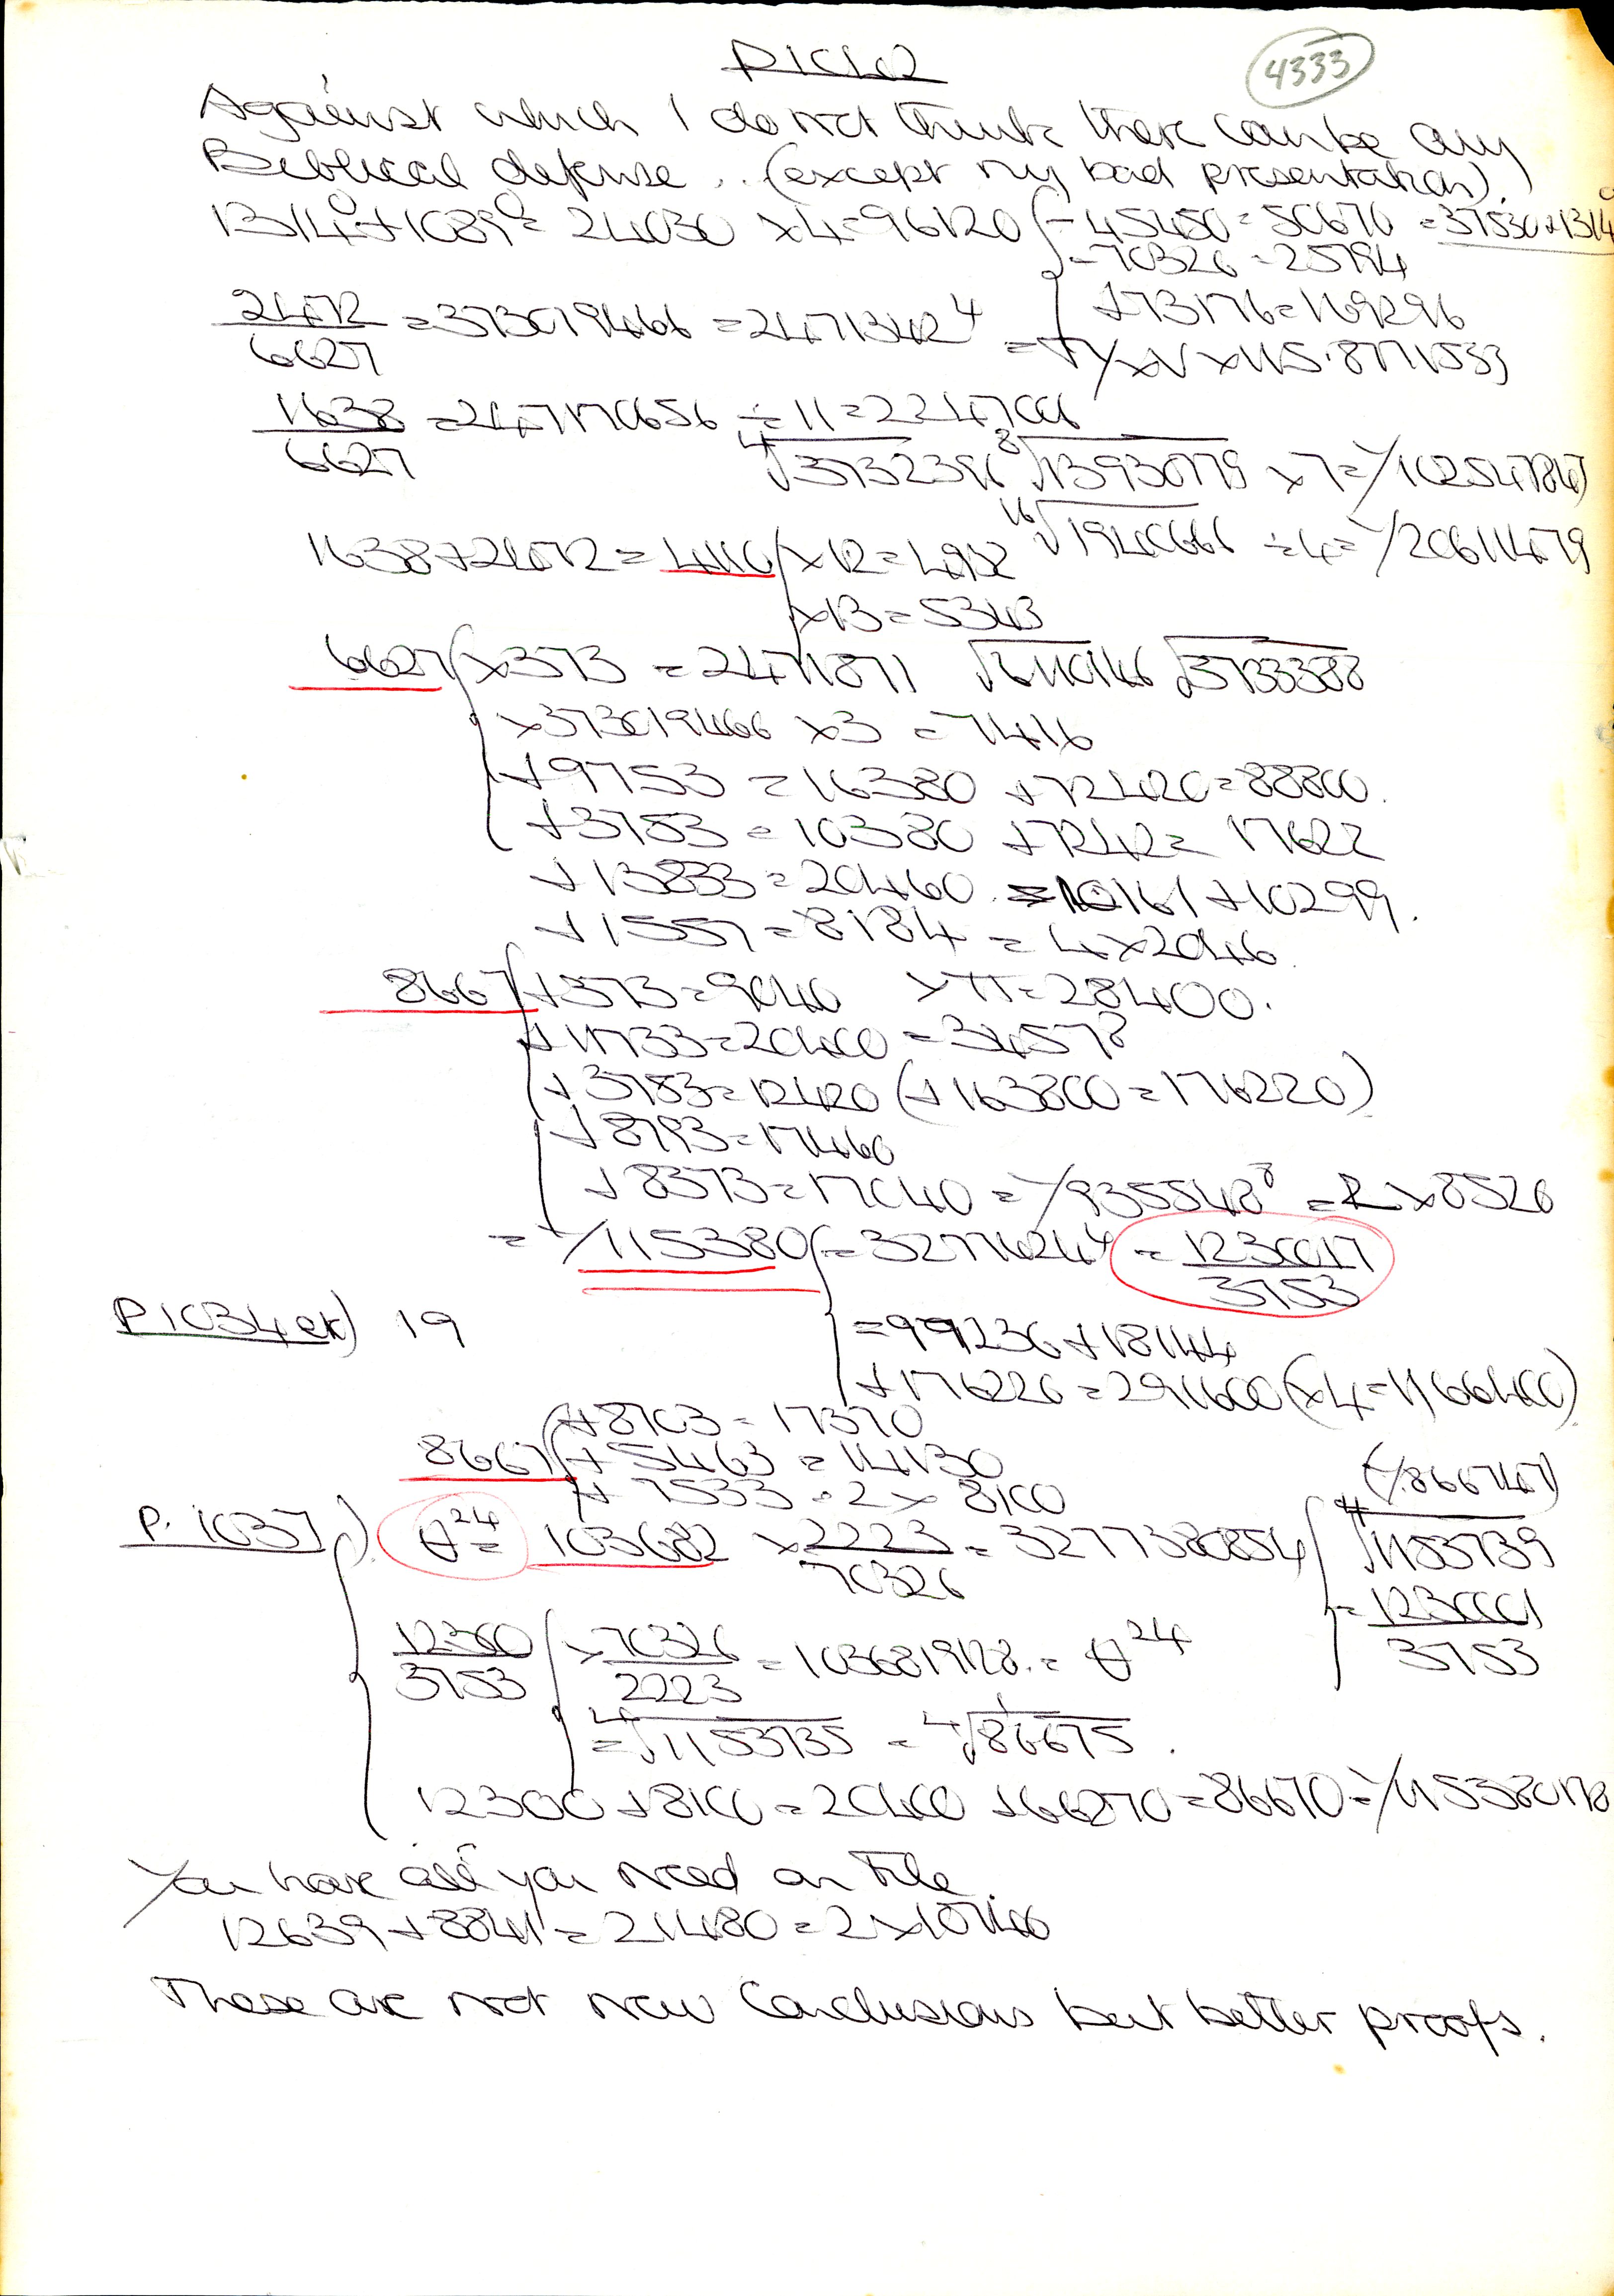 P1042
4333
Against which I do not think there can be any
Biblical defense .. (except my bad presentation).
13140 + 10890 = 24030 × 4 = 96120 - 45450 = 50670 = 37530 + 1314
- 70326 = 25794
2472/6627 = 373019466 = 2471342⁴ + 73176 = 169296
1638/6627 = 247170656 ÷ 11 = 2247006
⁴√3732396 ⁸√13930779 × 7 = 1/102547847
1638 + 2472 = 4110 × 12 = 4932 ¹⁶√1940666 ÷ 4 = 1/206114479
× 13 = 5343
6627 × 373 = 2471871 √6110146 √3733388
× 373019466 × 3 = 7416
+ 9753 = 16380 + 72420 = 88800.
+ 3753 = 10380 + 7242 = 17622
+ 13833 = 20460 = 10161 + 10299.
+ 1557 = 8184 = 4 × 2046.
8667 + 373 = 9040 × π = 28400.
+ 11733 = 20400 = 34578
+ 3753 = 12420 (+ 163800 = 176220)
+ 8793 = 17460
+ 8373 = 17040 = 1/935548⁸ = 2 × 8520
= 1/115380 = 32776244 = 1230017/3753
P1034 ex) 19
= 99236 + 18144
+ 176220 = 291600 (× 4 = 1166400)
+ 8703 = 17370
8667 + 5463 = 14130
+ 7533 = 2 × 8100
(1/.8667467)
P. 1037) θ²⁴ = 103682 × 2223/70326 = 3277380854 ⁴√1153739
= 1230001/3753
12300/3753 × 70326/2223 = 103681928. = θ²⁴
= ⁴√1153735 = ⁴√86675.
12300 + 8100 = 20400 + 66270 = 86670 = 1/115380178
You have all you need on file.
12639 + 8841 = 21480 = 2 × 10740
These are not new Conclusions but better proofs.